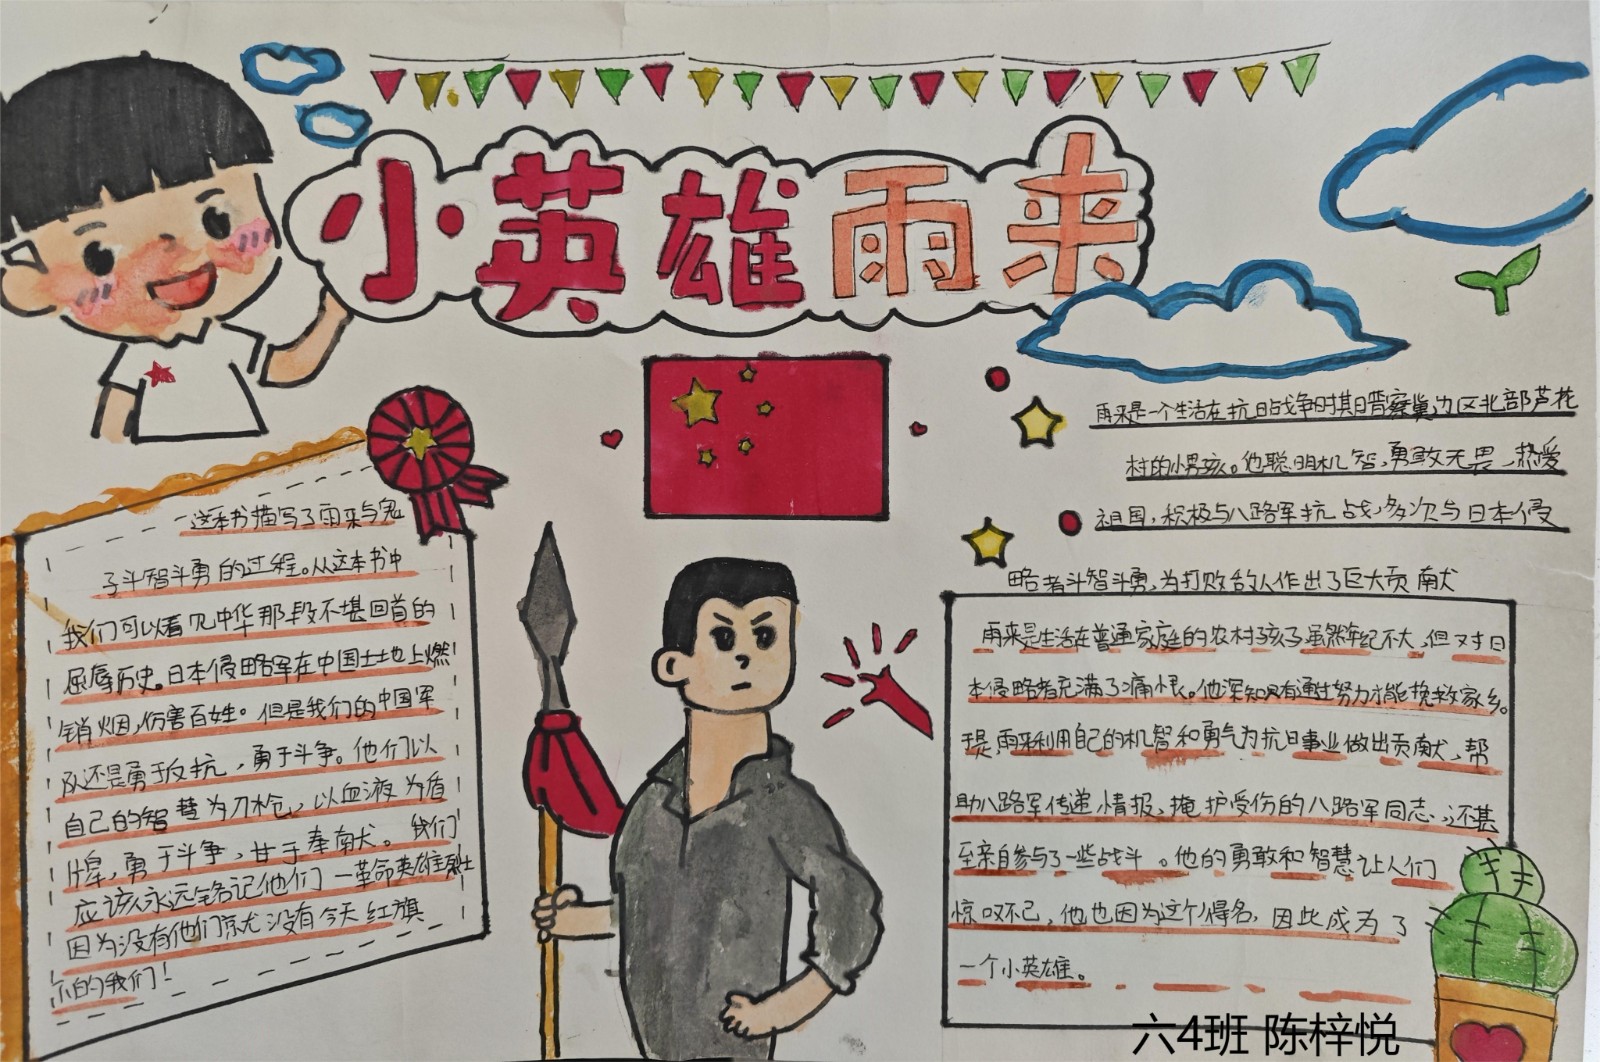 小英雄雨来
雨来是一个生活在抗日战争时期日晋察冀边区北部芦花
村的小男孩。他聪明机智,勇敢无畏,热爱
祖国,积极与八路军抗战,多次与日本侵
略者斗智斗勇,为打败敌人作出了巨大贡献
这本书描写了雨来与鬼
子斗智斗勇的过程。从这本书中
我们可以看见中华那段不堪回首的
屈辱历史。日本侵略军在中国土地上燃
销烟,伤害百姓。但是我们的中国军
队还是勇于反抗,勇于斗争。他们以
自己的智慧为刀枪,以血液为盾
牌,勇于斗争,甘于奉献。我们
应该永远铭记他们一革命英雄烈士
因为没有他们就没有今天红旗
下的我们!
雨来是生活在普通家庭的农村孩子虽然年纪不大,但对日
本侵略者充满了痛恨。他深知只有通过努力才能挽救家乡。
于是,雨来利用自己的机智和勇气为抗日事业做出贡献,帮
助八路军传递情报,掩护受伤的八路军同志,还甚
至亲自参与了一些战斗。他的勇敢和智慧让人们
惊叹不已,他也因为这个得名,因此成为了
一个小英雄。
六4班 陈梓悦